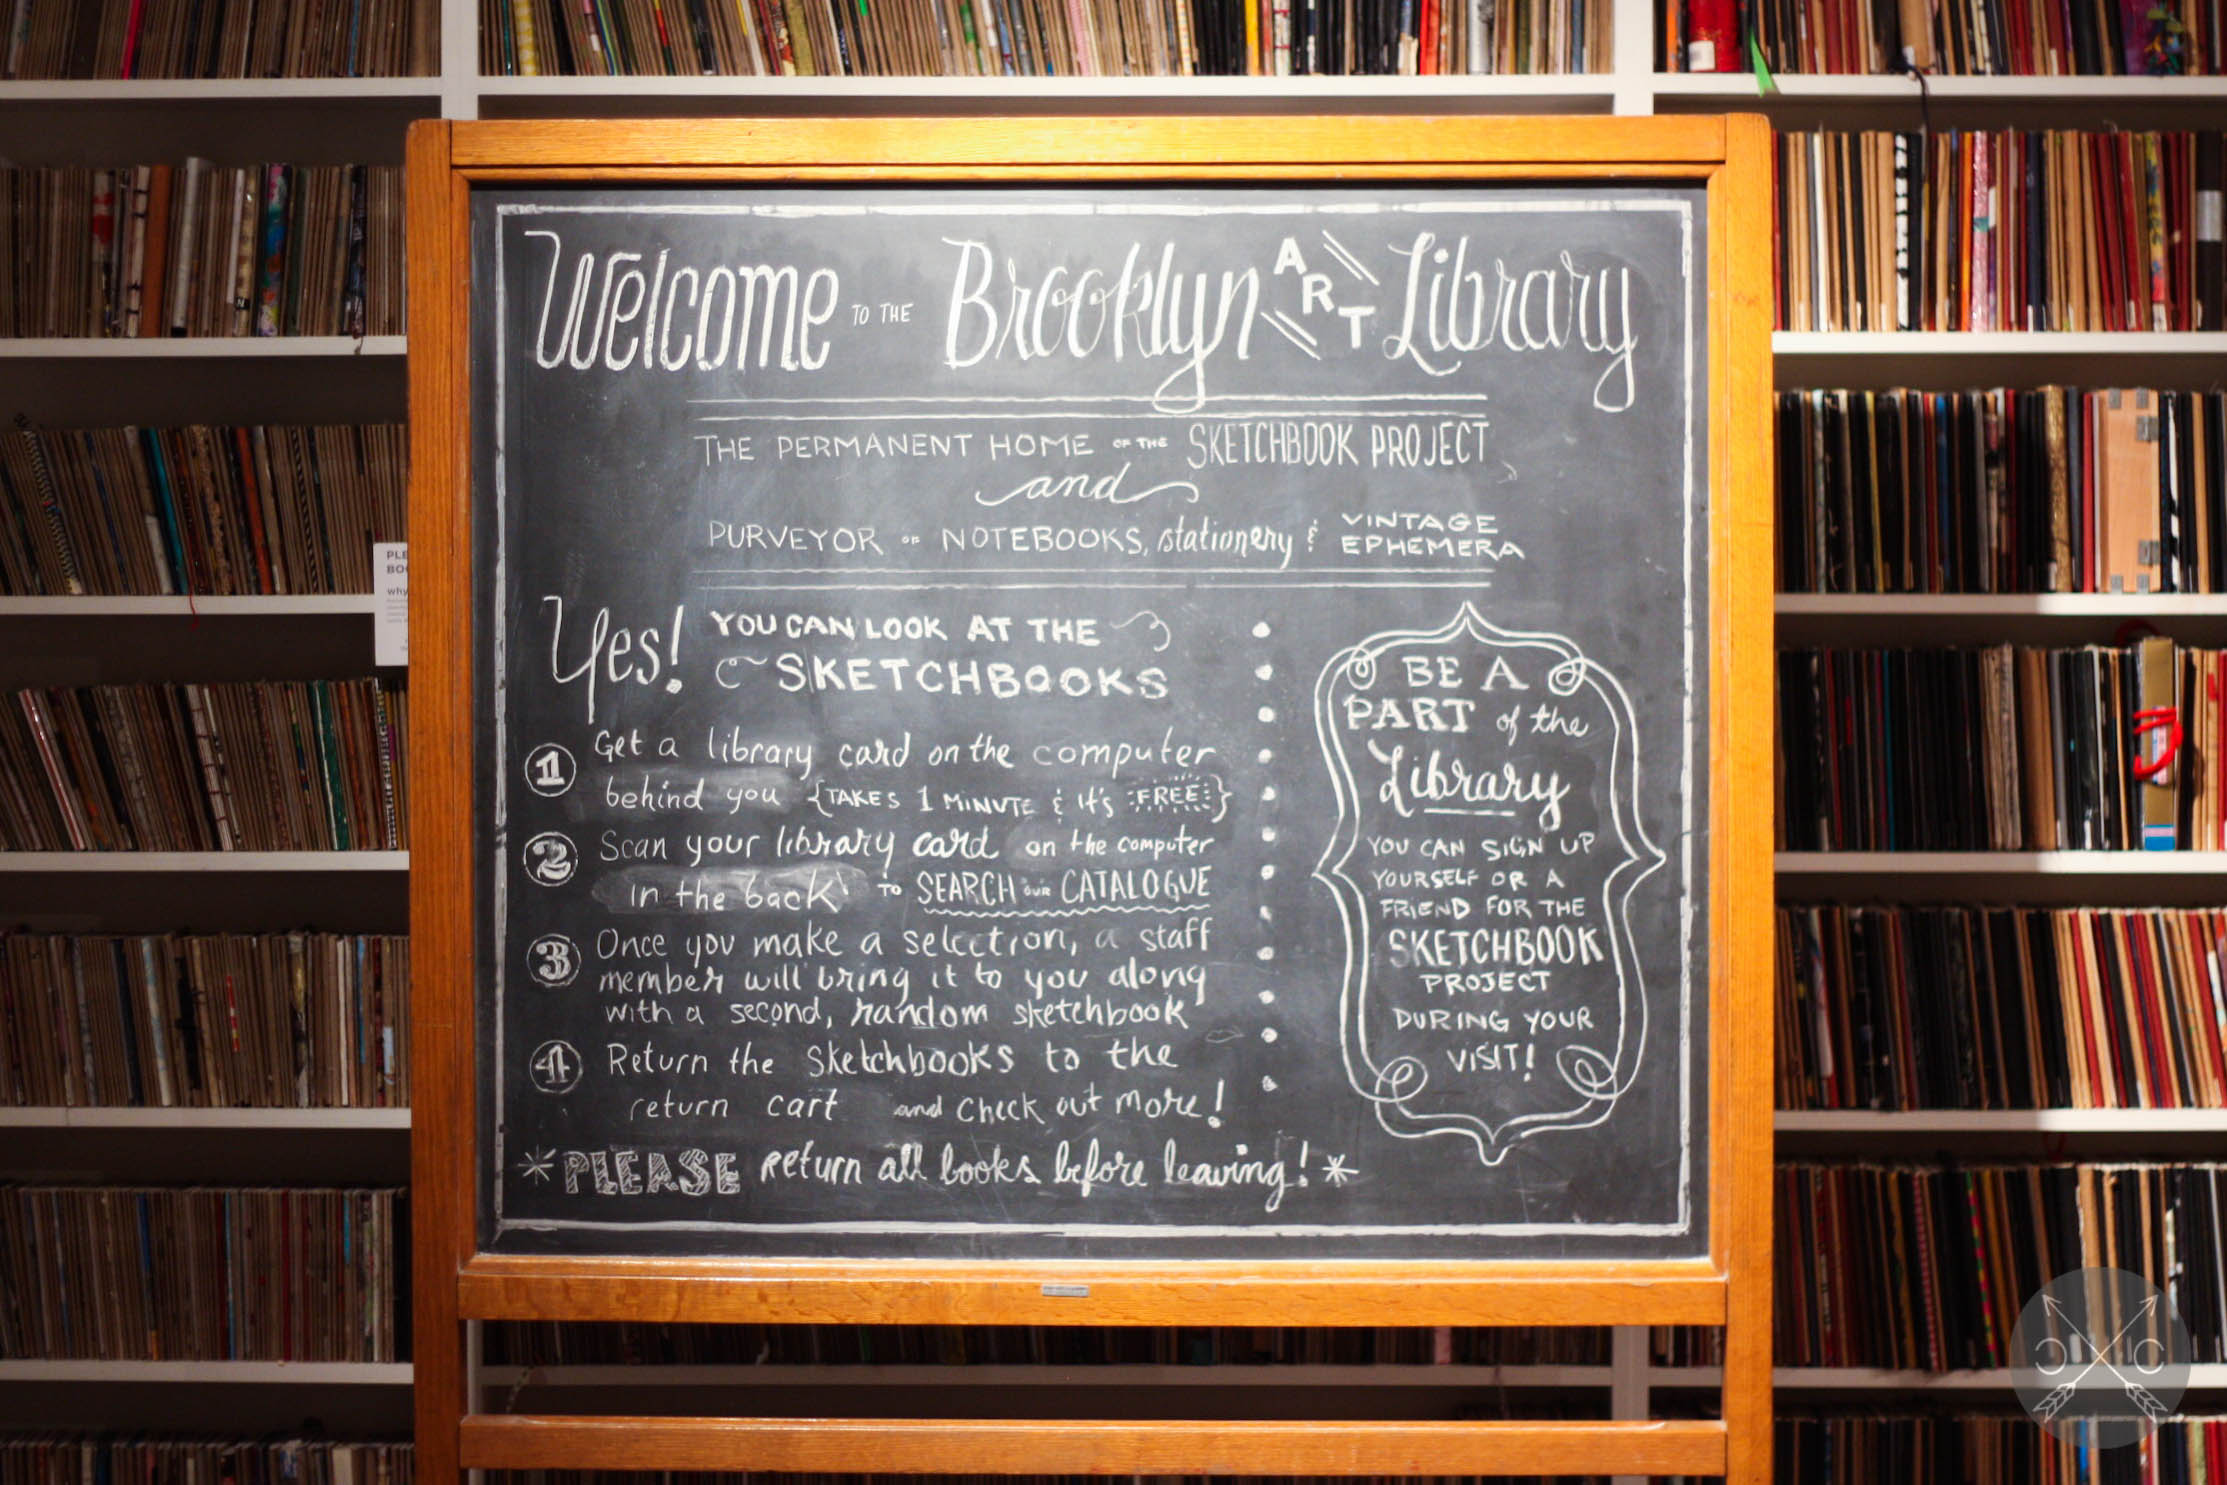 Welcome TO THE Brooklyn ART Library
THE PERMANENT HOME OF THE SKETCHBOOK PROJECT
and
PURVEYOR OF NOTEBOOKS, stationery & VINTAGE EPHEMERA
Yes! YOU CAN LOOK AT THE
SKETCHBOOKS
1 Get a library card on the computer
behind you {TAKES 1 MINUTE & it's FREE}
2 Scan your library card on the computer
in the back to SEARCH OUR CATALOGUE
3 Once you make a selection, a staff
member will bring it to you along
with a second, random sketchbook
4 Return the sketchbooks to the
return cart and check out more!
*PLEASE return all books before leaving!*
BE A
PART of the
Library
YOU CAN SIGN UP
YOURSELF OR A
FRIEND FOR THE
SKETCHBOOK
PROJECT
DURING YOUR
VISIT!
PLE
BOO
why
C C